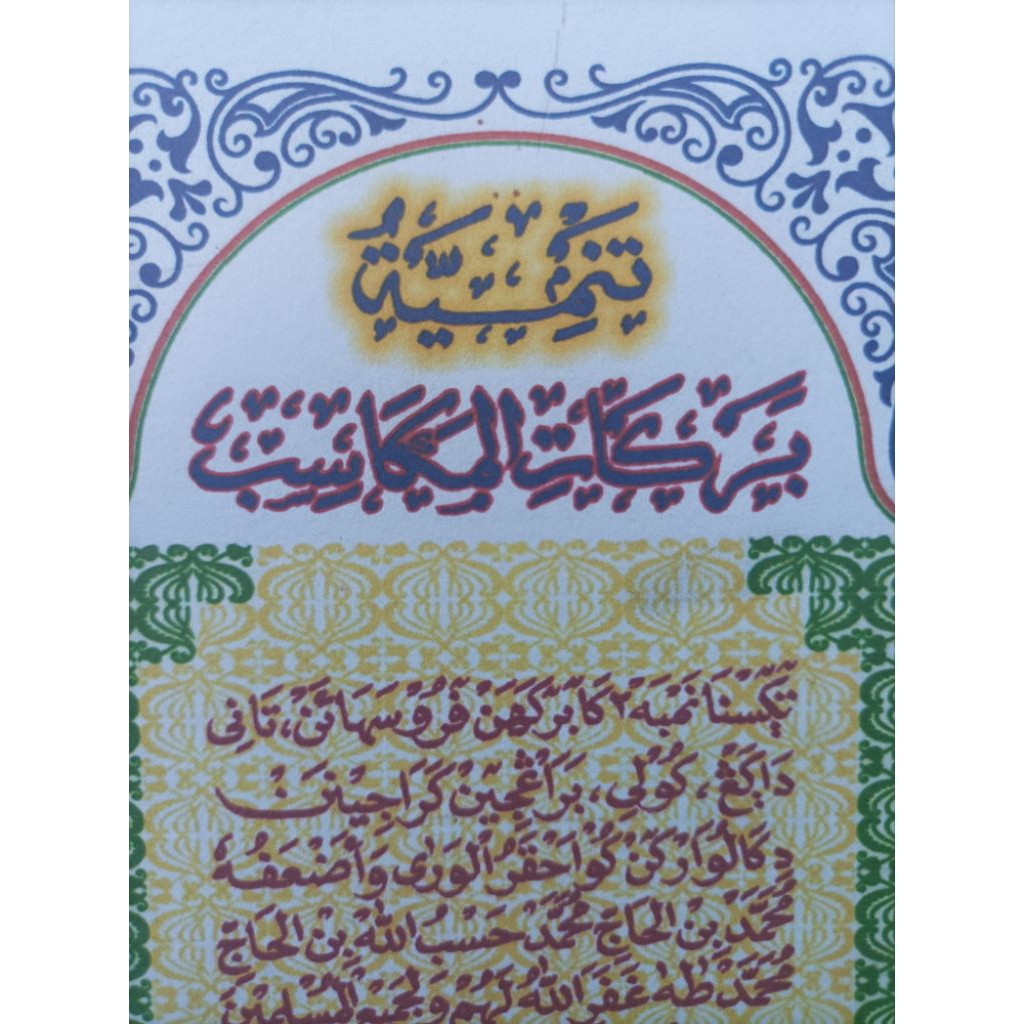 تَنْمِيَّةُ
بَرَكَاتِ المَكَاسِبِ
تَكَسْنَا نَمْبَه٢ كَابَرْكَهَنْ ڤَرُوسَهَائَنْ، تَانِى
دَاكَڠْ، كُولِي، بَرَاڠجِين كَرَاجِينَن
دِكَالُوَارْكَنْ كُو اَحْقَرُ الْوَرٰى وَاَضْعَفُهُ
مُحَمَّدْ بِنْ الحَاجِّ مُحَمَّدْ حَسْبُ اللهِ بِنِ الحَاجِّ
مُحَمَّدْ طٰهٰ غَفَرَ اللهُ لَهُمْ وَلِجَمِيْعِ الْمُسْلِمِيْنَ